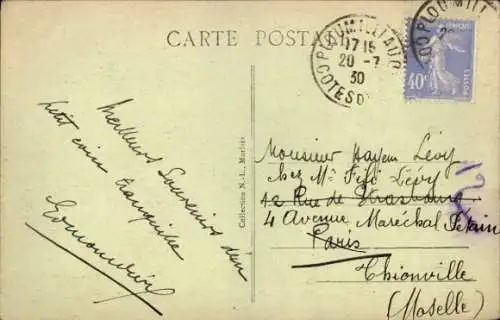 CARTE POSTALE
PLOUMILLIAU
17 15
20 - 7
30
COTES D
PLOUMILLI
40c
Meilleurs Souvenirs d'un
petit coin tranquille
Collection N.-L., Morlaix
Monsieur Hayem Lévy
chez Mr Fifi Lévy
12 Rue de Strasbourg
4 Avenue Maréchal Pétain
Paris
Thionville
(Moselle)